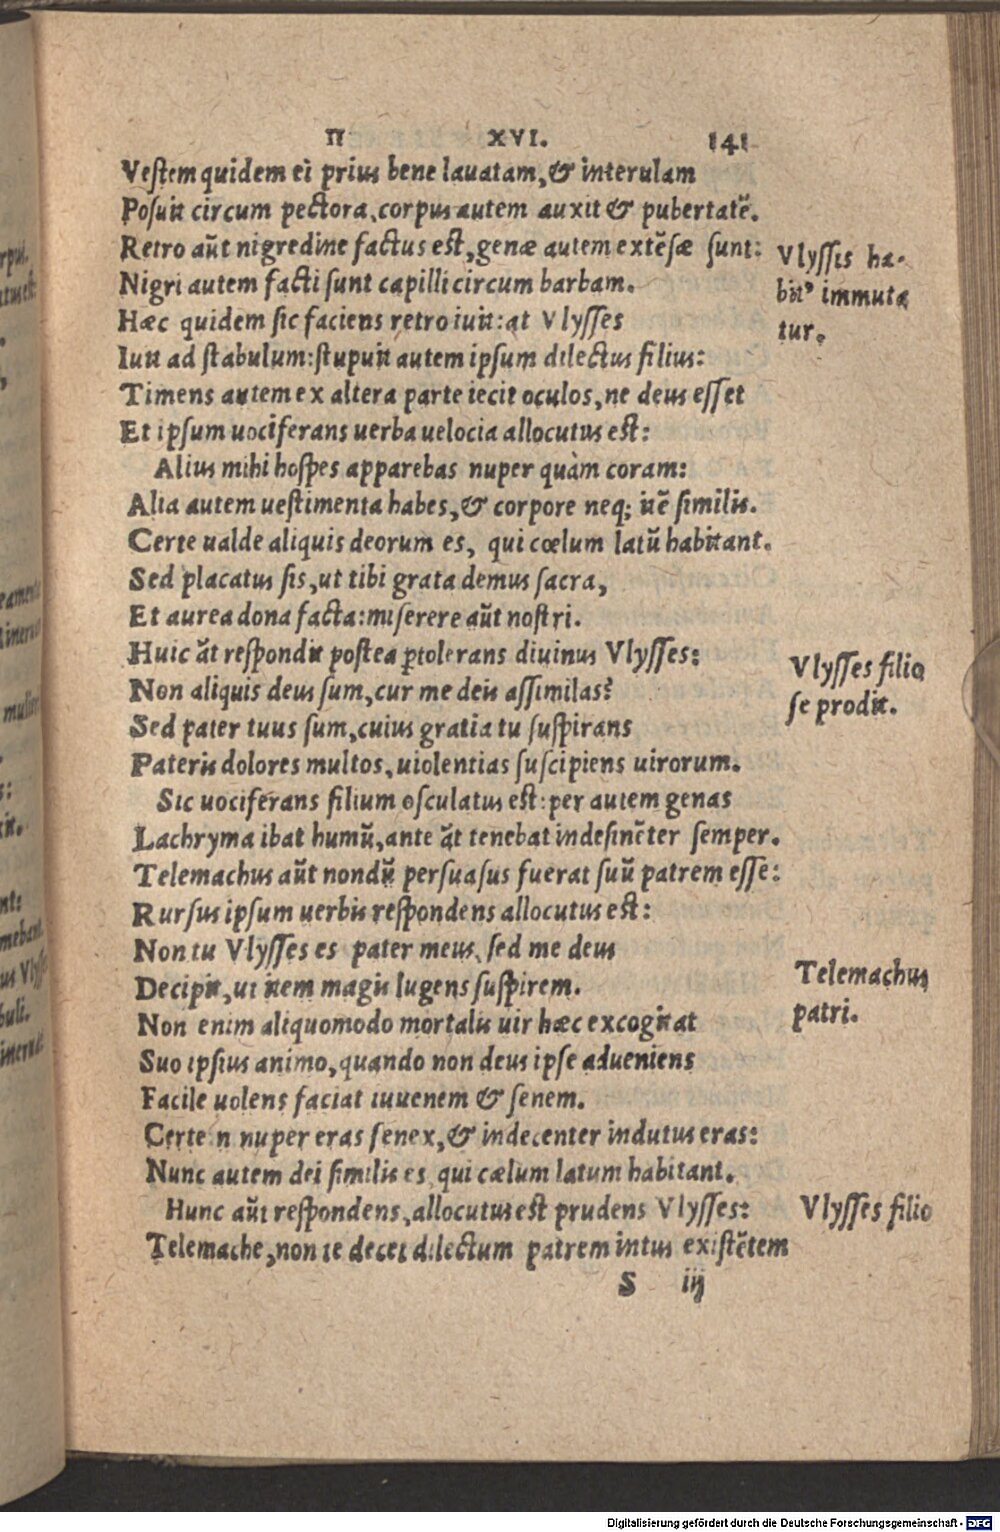 Π XVI. 141
Vestem quidem ei prius bene lauatam, & interulam
Posuit circum pectora, corpus autem auxit & pubertatẽ.
Retro aũt nigredine factus est, genæ autem extẽsæ sunt:
Nigri autem facti sunt capilli circum barbam.
Hæc quidem sic faciens retro iuit: at Vlysses
Iuit ad stabulum: stupuit autem ipsum dilectus filius:
Timens autem ex altera parte iecit oculos, ne deus esset
Et ipsum uociferans uerba uelocia allocutus est:
Alius mihi hospes apparebas nuper quàm coram:
Alia autem uestimenta habes, & corpore neq; itẽ similis.
Certe ualde aliquis deorum es, qui cœlum latũ habitant.
Sed placatus sis, ut tibi grata demus sacra,
Et aurea dona facta: miserere aũt nostri.
Huic ãt respondit postea ꝑtolerans diuinus Vlysses:
Non aliquis deus sum, cur me deis assimilas?
Sed pater tuus sum, cuius gratia tu suspirans
Pateris dolores multos, uiolentias suscipiens uirorum.
Sic uociferans filium osculatus est: per autem genas
Lachryma ibat humũ, ante ãt tenebat indesinẽter semper.
Telemachus aũt nondũ persuasus fuerat suũ patrem esse:
Rursus ipsum uerbis respondens allocutus est:
Non tu Vlysses es pater meus, sed me deus
Decipit, ut item magis lugens suspirem.
Non enim aliquomodo mortalis uir hæc excogitat
Suo ipsius animo, quando non deus ipse adueniens
Facile uolens faciat iuuenem & senem.
Certe n nuper eras senex, & indecenter indutus eras:
Nunc autem dei similis es, qui cælum latum habitant.
Hunc aũt respondens, allocutus est prudens Vlysses:
Telemache, non te decet dilectum patrem intus existẽtem
S iij
Vlyssis ha-
bitꝰ immuta
tur.
Vlysses filio
se prodit.
Telemachus
patri.
Vlysses filio
rpus.
tus est
mulier
mebant
us Vlyss
buli.
Digitalisierung gefördert durch die Deutsche Forschungsgemeinschaft - DFG